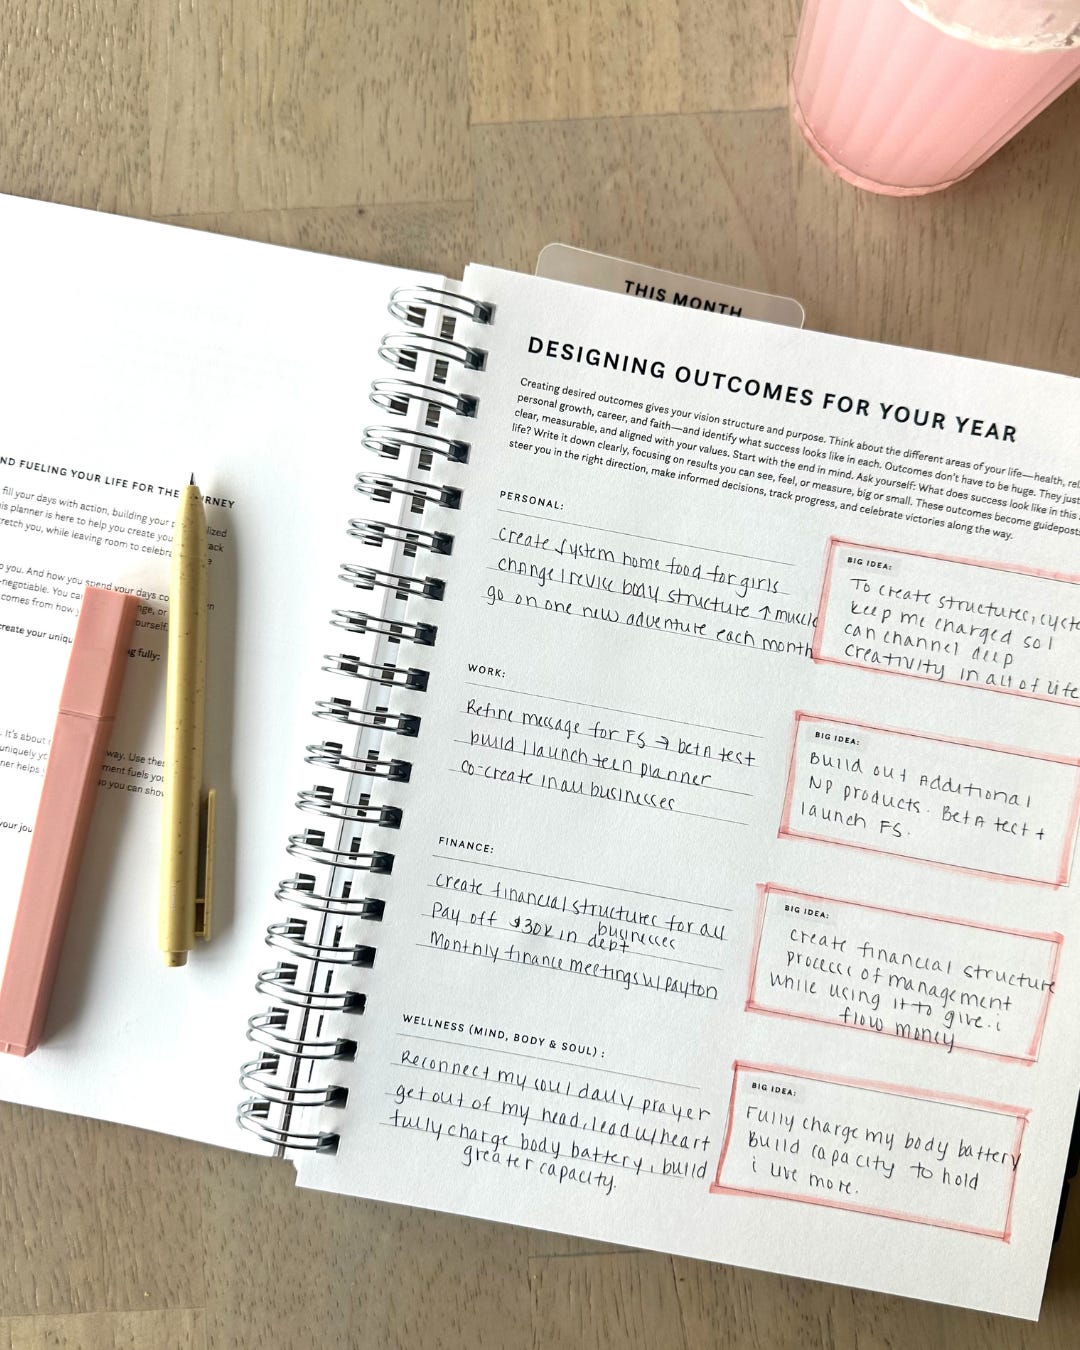 THIS MONTH
DESIGNING OUTCOMES FOR YOUR YEAR
Creating desired outcomes gives your vision structure and purpose. Think about the different areas of your life—health, rel
personal growth, career, and faith—and identify what success looks like in each. Outcomes don't have to be huge. They just
clear, measurable, and aligned with your values. Start with the end in mind. Ask yourself: What does success look like in this
life? Write it down clearly, focusing on results you can see, feel, or measure, big or small. These outcomes become guidepost
steer you in the right direction, make informed decisions, track progress, and celebrate victories along the way.
PERSONAL:
create system home food for girls
change | revise body structure ↑ muscle
go on one new adventure each month
BIG IDEA:
To create structures, cycle
keep me charged so I
can channel deep
creativity in all of life
WORK:
Refine message for FS → beta test
build | launch teen planner
co-create in all businesses
BIG IDEA:
Build out additional
NP products. Beta test +
launch FS.
FINANCE:
create financial structures for all
businesses
Pay off $30K in debt
Monthly finance meetings w/ payton
BIG IDEA:
create financial structure
process of management
while using it to give. i
flow money
WELLNESS (MIND, BODY & SOUL):
Reconnect my soul daily prayer
get out of my head, lead w/ heart
fully charge body battery, build
greater capacity.
BIG IDEA:
Fully charge my body battery
build capacity to hold
i live more.
ND FUELING YOUR LIFE FOR THE RNEY
fill your days with action, building your lized
is planner is here to help you create you ack
retch you, while leaving room to celebra
o you. And how you spend your days co
-negotiable. You can nge, or
comes from how y ourself.
create your uniqu g fully:
. It's about way. Use the
uniquely y ment fuels you
ner helps so you can show
your jou